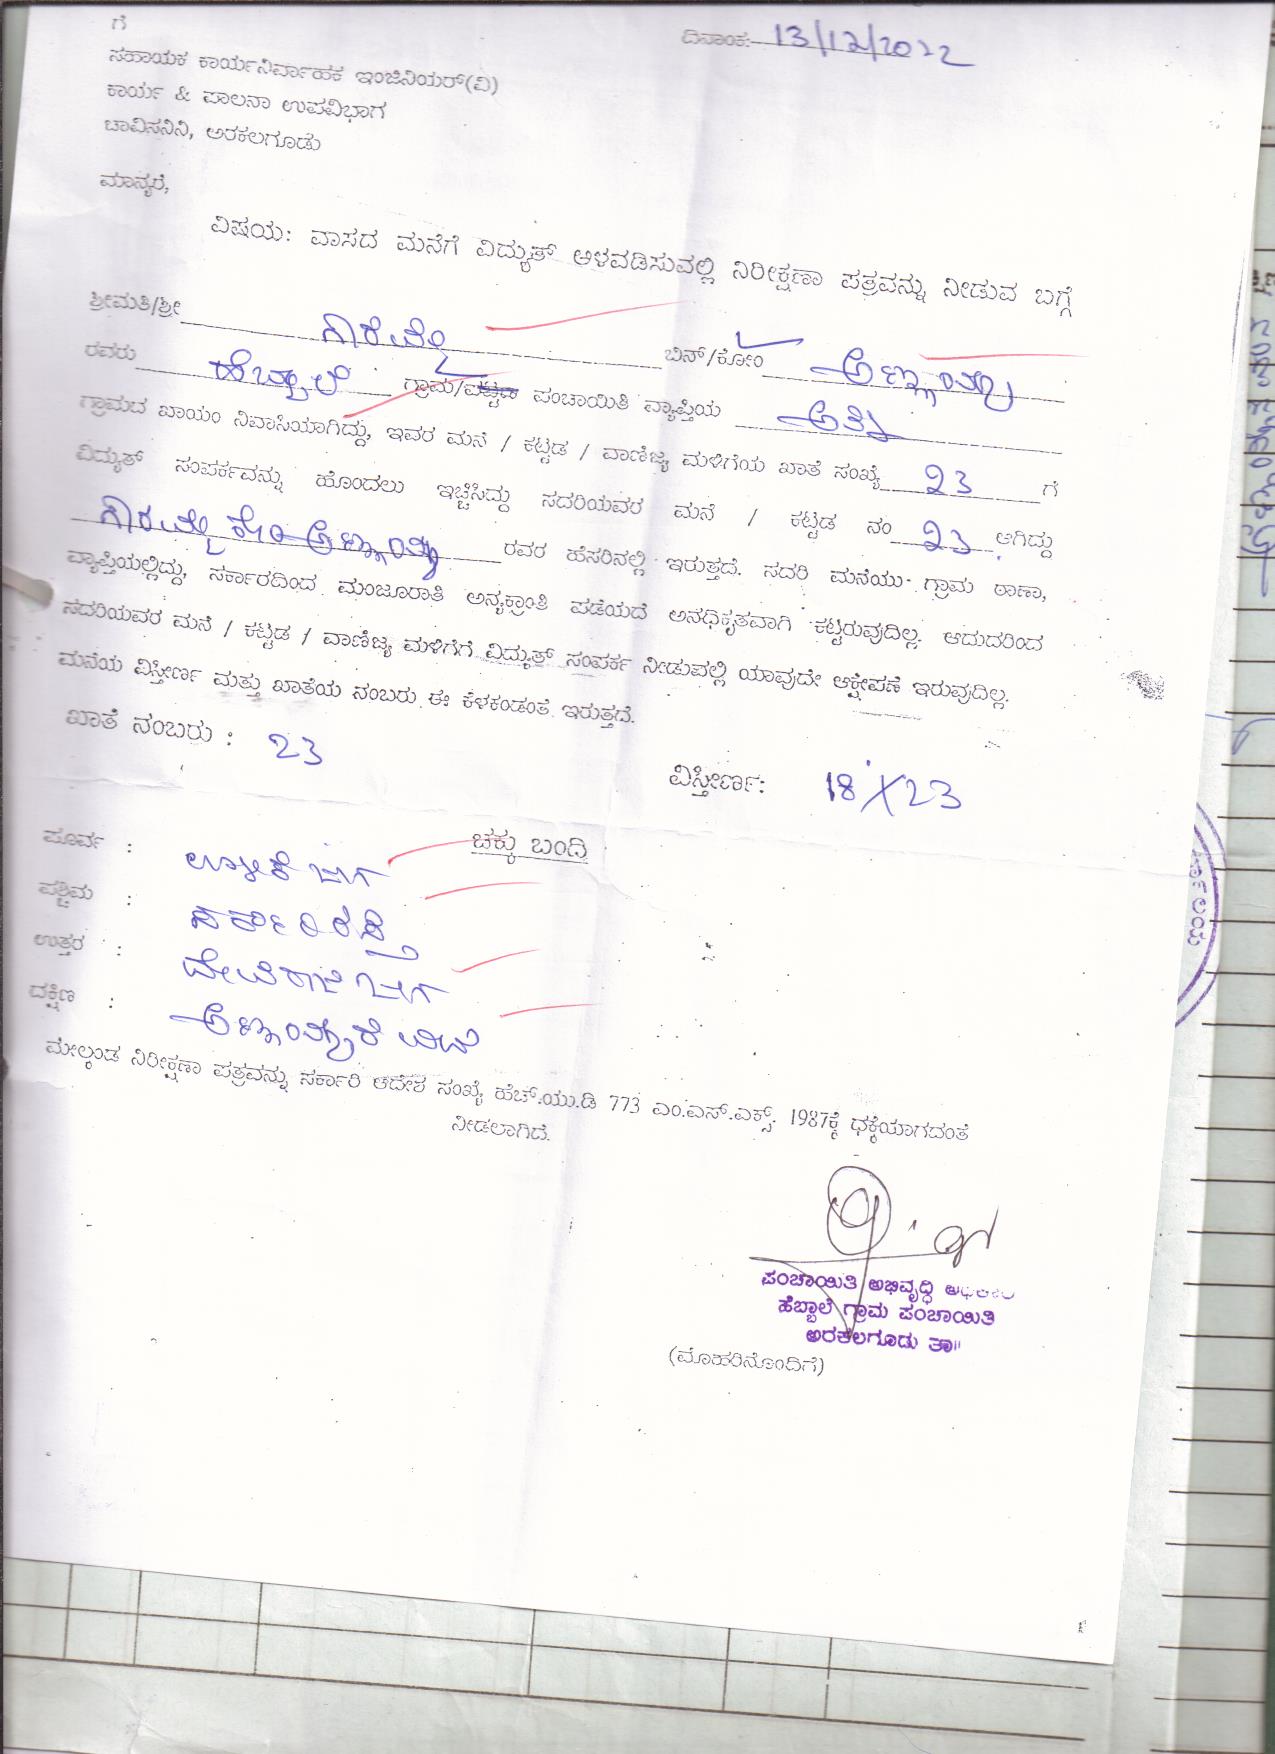 ಗೆ
ದಿನಾಂಕ: 13/12/2022
ಸಹಾಯಕ ಕಾರ್ಯನಿರ್ವಾಹಕ ಇಂಜಿನಿಯರ್(ವಿ)
ಕಾರ್ಯ & ಪಾಲನಾ ಉಪವಿಭಾಗ
ಚಾವಿಸನಿನಿ, ಅರಕಲಗೂಡು
ಮಾನ್ಯರೆ,
ವಿಷಯ: ವಾಸದ ಮನೆಗೆ ವಿದ್ಯುತ್ ಅಳವಡಿಸುವಲ್ಲಿ ನಿರೀಕ್ಷಣಾ ಪತ್ರವನ್ನು ನೀಡುವ ಬಗ್ಗೆ
ಶ್ರೀಮತಿ/ಶ್ರೀ ಗೌರಮ್ಮ ಬಿನ್/ಕೋಂ ಅಣ್ಣಾಯ್ಯ
ರವರು ಹೆಬ್ಬಾಲೆ ಗ್ರಾಮ/ಪಟ್ಟಣ ಪಂಚಾಯಿತಿ ವ್ಯಾಪ್ತಿಯ
ಗ್ರಾಮದ ಖಾಯಂ ನಿವಾಸಿಯಾಗಿದ್ದು, ಇವರ ಮನೆ / ಕಟ್ಟಡ / ವಾಣಿಜ್ಯ ಮಳಿಗೆಯ ಖಾತೆ ಸಂಖ್ಯೆ 23 ಗೆ
ವಿದ್ಯುತ್ ಸಂಪರ್ಕವನ್ನು ಹೊಂದಲು ಇಚ್ಚಿಸಿದ್ದು ಸದರಿಯವರ ಮನೆ / ಕಟ್ಟಡ ನಂ 23 ಆಗಿದ್ದು
ಗೌರಮ್ಮ ಕೋಂ ಅಣ್ಣಾಯ್ಯ ರವರ ಹೆಸರಿನಲ್ಲಿ ಇರುತ್ತದೆ. ಸದರಿ ಮನೆಯು ಗ್ರಾಮ ಠಾಣಾ,
ವ್ಯಾಪ್ತಿಯಲ್ಲಿದ್ದು, ಸರ್ಕಾರದಿಂದ ಮಂಜೂರಾತಿ ಅನ್ಯಕ್ರಾಂತಿ ಪಡೆಯದೆ ಅನಧಿಕೃತವಾಗಿ ಕಟ್ಟಿರುವುದಿಲ್ಲ. ಆದುದರಿಂದ
ಸದರಿಯವರ ಮನೆ / ಕಟ್ಟಡ / ವಾಣಿಜ್ಯ ಮಳಿಗೆಗೆ ವಿದ್ಯುತ್ ಸಂಪರ್ಕ ನೀಡುವಲ್ಲಿ ಯಾವುದೇ ಆಕ್ಷೇಪಣೆ ಇರುವುದಿಲ್ಲ.
ಮನೆಯ ವಿಸ್ತೀರ್ಣ ಮತ್ತು ಖಾತೆಯ ನಂಬರು ಈ ಕೆಳಕಂಡಂತೆ ಇರುತ್ತದೆ.
ಖಾತೆ ನಂಬರು : 23
ವಿಸ್ತೀರ್ಣ: 18 X 23
ಚಕ್ಕುಬಂದಿ
ಪೂರ್ವ :
ಪಶ್ಚಿಮ : ಸರ್ಕಾರಿ ರಸ್ತೆ
ಉತ್ತರ : ದೇವರಾಜ ಜಾಗ
ದಕ್ಷಿಣ : ಅಣ್ಣಾಯ್ಯರ ಮನೆ
ಮೇಲ್ಕಂಡ ನಿರೀಕ್ಷಣಾ ಪತ್ರವನ್ನು ಸರ್ಕಾರಿ ಆದೇಶ ಸಂಖ್ಯೆ ಹೆಚ್.ಯು.ಡಿ 773 ಎಂ.ಎನ್.ಎಕ್ಸ್. 1987ಕ್ಕೆ ಧಕ್ಕೆಯಾಗದಂತೆ
ನೀಡಲಾಗಿದೆ.
ಪಂಚಾಯಿತಿ ಅಭಿವೃದ್ಧಿ
ಹೆಬ್ಬಾಲೆ ಗ್ರಾಮ ಪಂಚಾಯಿತಿ
ಅರಕಲಗೂಡು ತಾ||
(ಮೊಹರಿನೊಂದಿಗೆ)